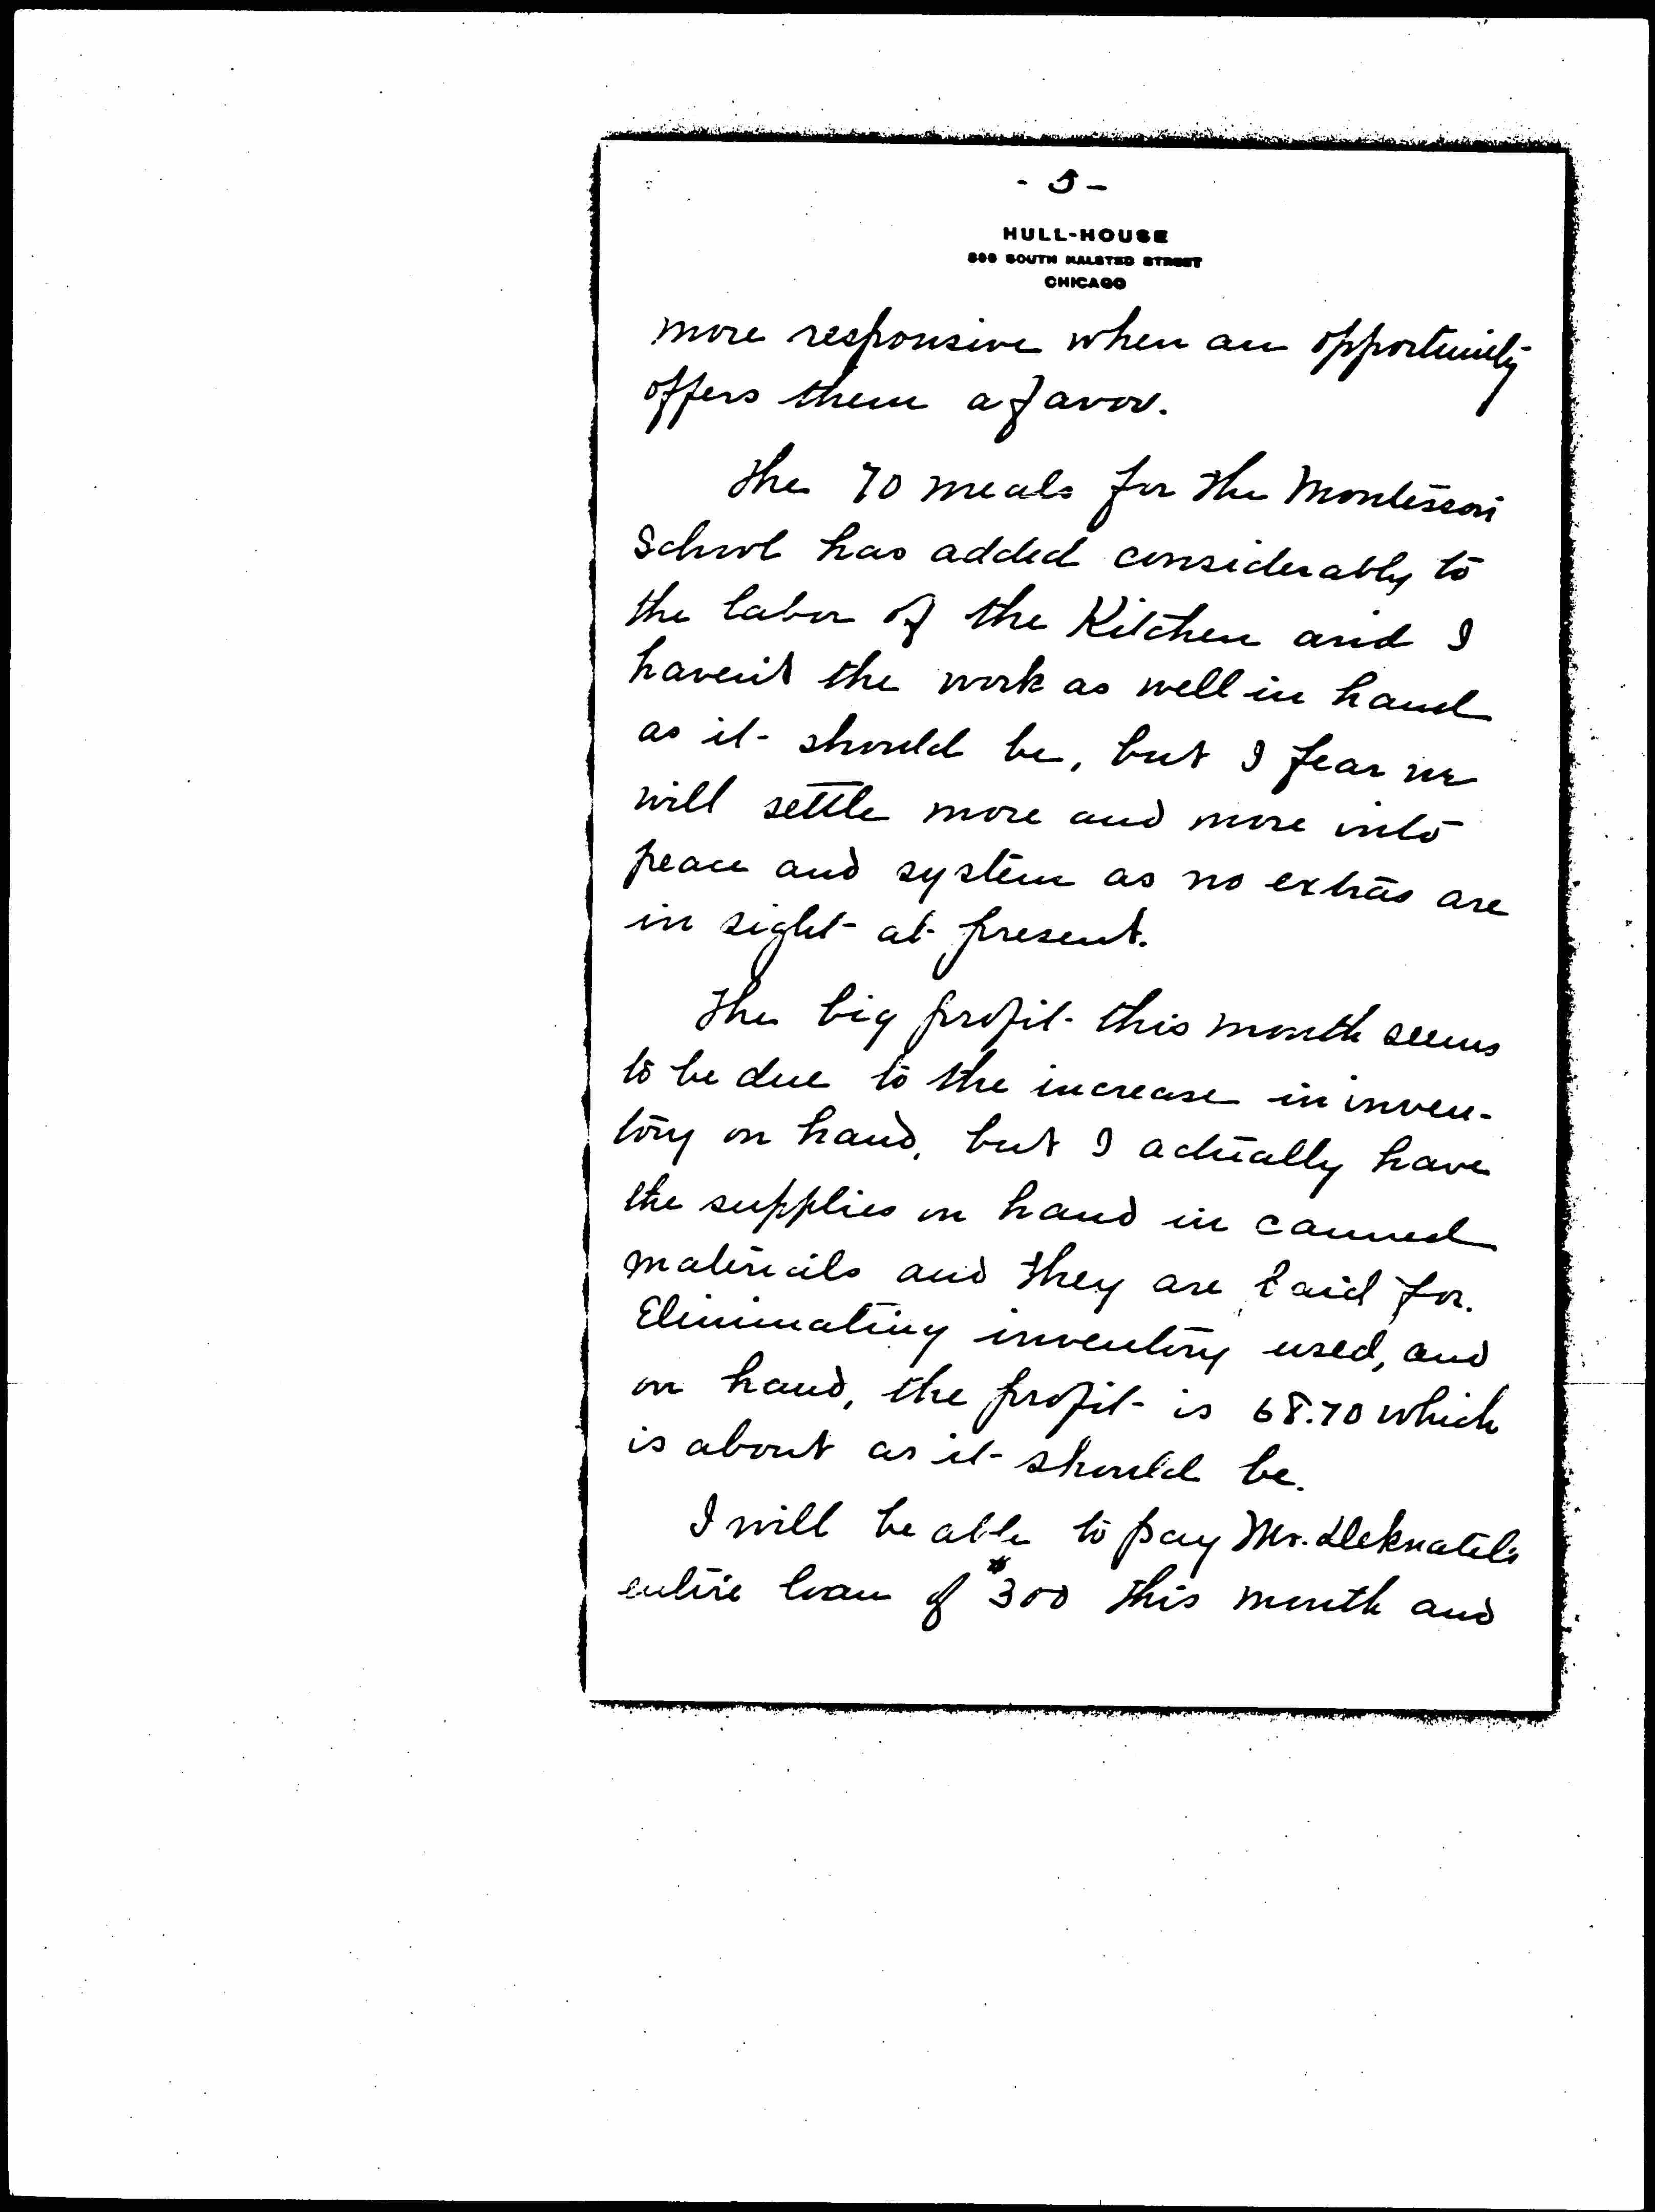 - 5 -
HULL-HOUSE
800 SOUTH HALSTED STREET
CHICAGO
more responsive when an opportunity
offers them a favor.
The 70 meals for the Montessori
School has added considerably to
the labor of the Kitchen and I
haven't the work as well in hand
as it should be, but I fear we
will settle more and more into
peace and system as no extras are
in sight at present.
The big profit this month seems
to be due to the increase in inven-
tory on hand, but I actually have
the supplies on hand in canned
materials and they are paid for.
Eliminating inventory used, and
on hand, the profit is 68.70 which
is about as it should be.
I will be able to pay Mr. Deknatel's
entire loan of $300 this month and